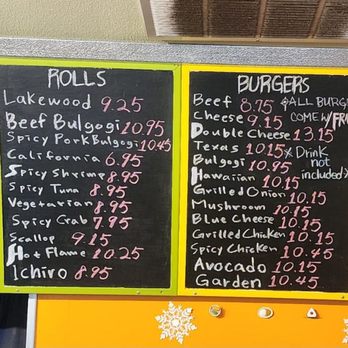 ROLLS
Lakewood 9.25
Beef Bulgogi 10.95
Spicy Pork Bulgogi 10.45
California 6.95
Spicy Shrimp 8.95
Spicy Tuna 8.95
Vegetarian 8.95
Spicy Crab 7.95
Scallop 9.15
Hot Flame 10.25
Ichiro 8.95
BURGERS
Beef 8.75 *ALL BURG
Cheese 9.15 COME W/FR
Double Cheese 13.15
Texas 10.15 * Drink
Bulgogi 10.95 not
Hawaiian 10.15 included *
Grilled Onion 10.15
Mushroom 10.15
Blue Cheese 10.15
Grilled Chicken 10.45
Spicy Chicken 10.45
Avocado 10.15
Garden 10.45